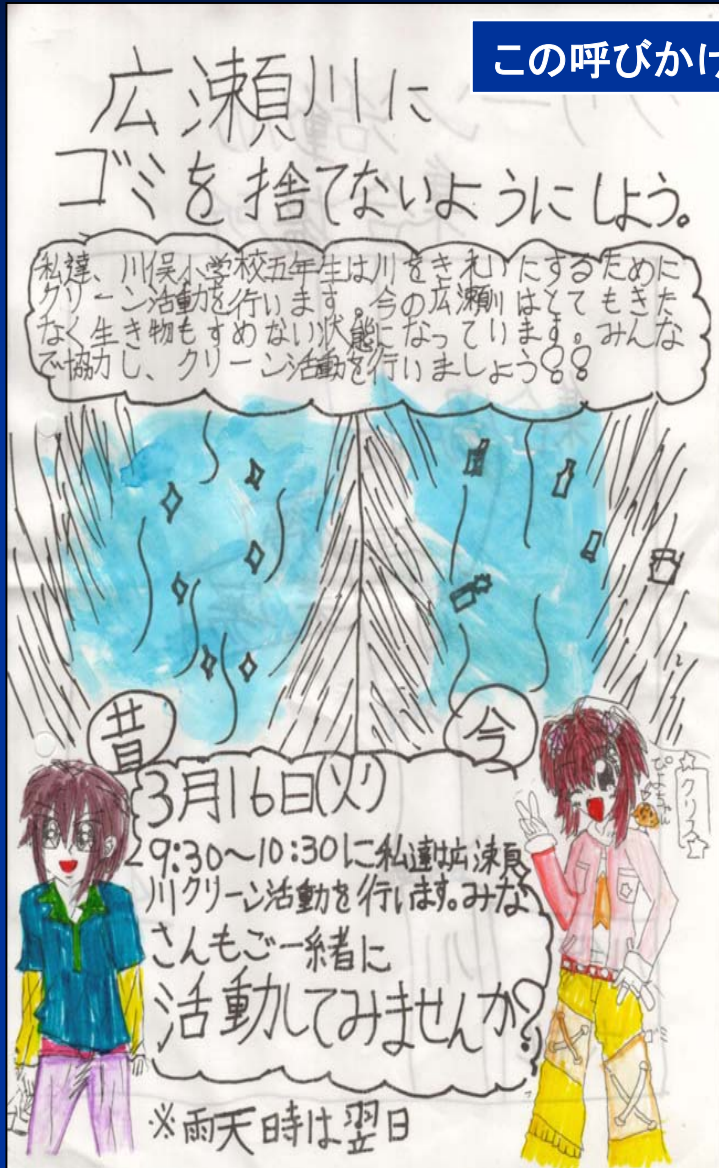 この呼びかけ
広瀬川に
ゴミを捨てないようにしよう。
私達、川俣小学校五年生は川をきれいにするために
クリーン活動を行います。今の広瀬川はとてもきた
なく生き物もすめない状態になっています。みんな
で協力し、クリーン活動を行いましょう!!
昔
今
3月16日(火)
9:30~10:30に私達は広瀬
川クリーン活動を行います。みな
さんもご一緒に
活動してみませんか?
※雨天時は翌日
☆クリス☆
ぴよちゃん